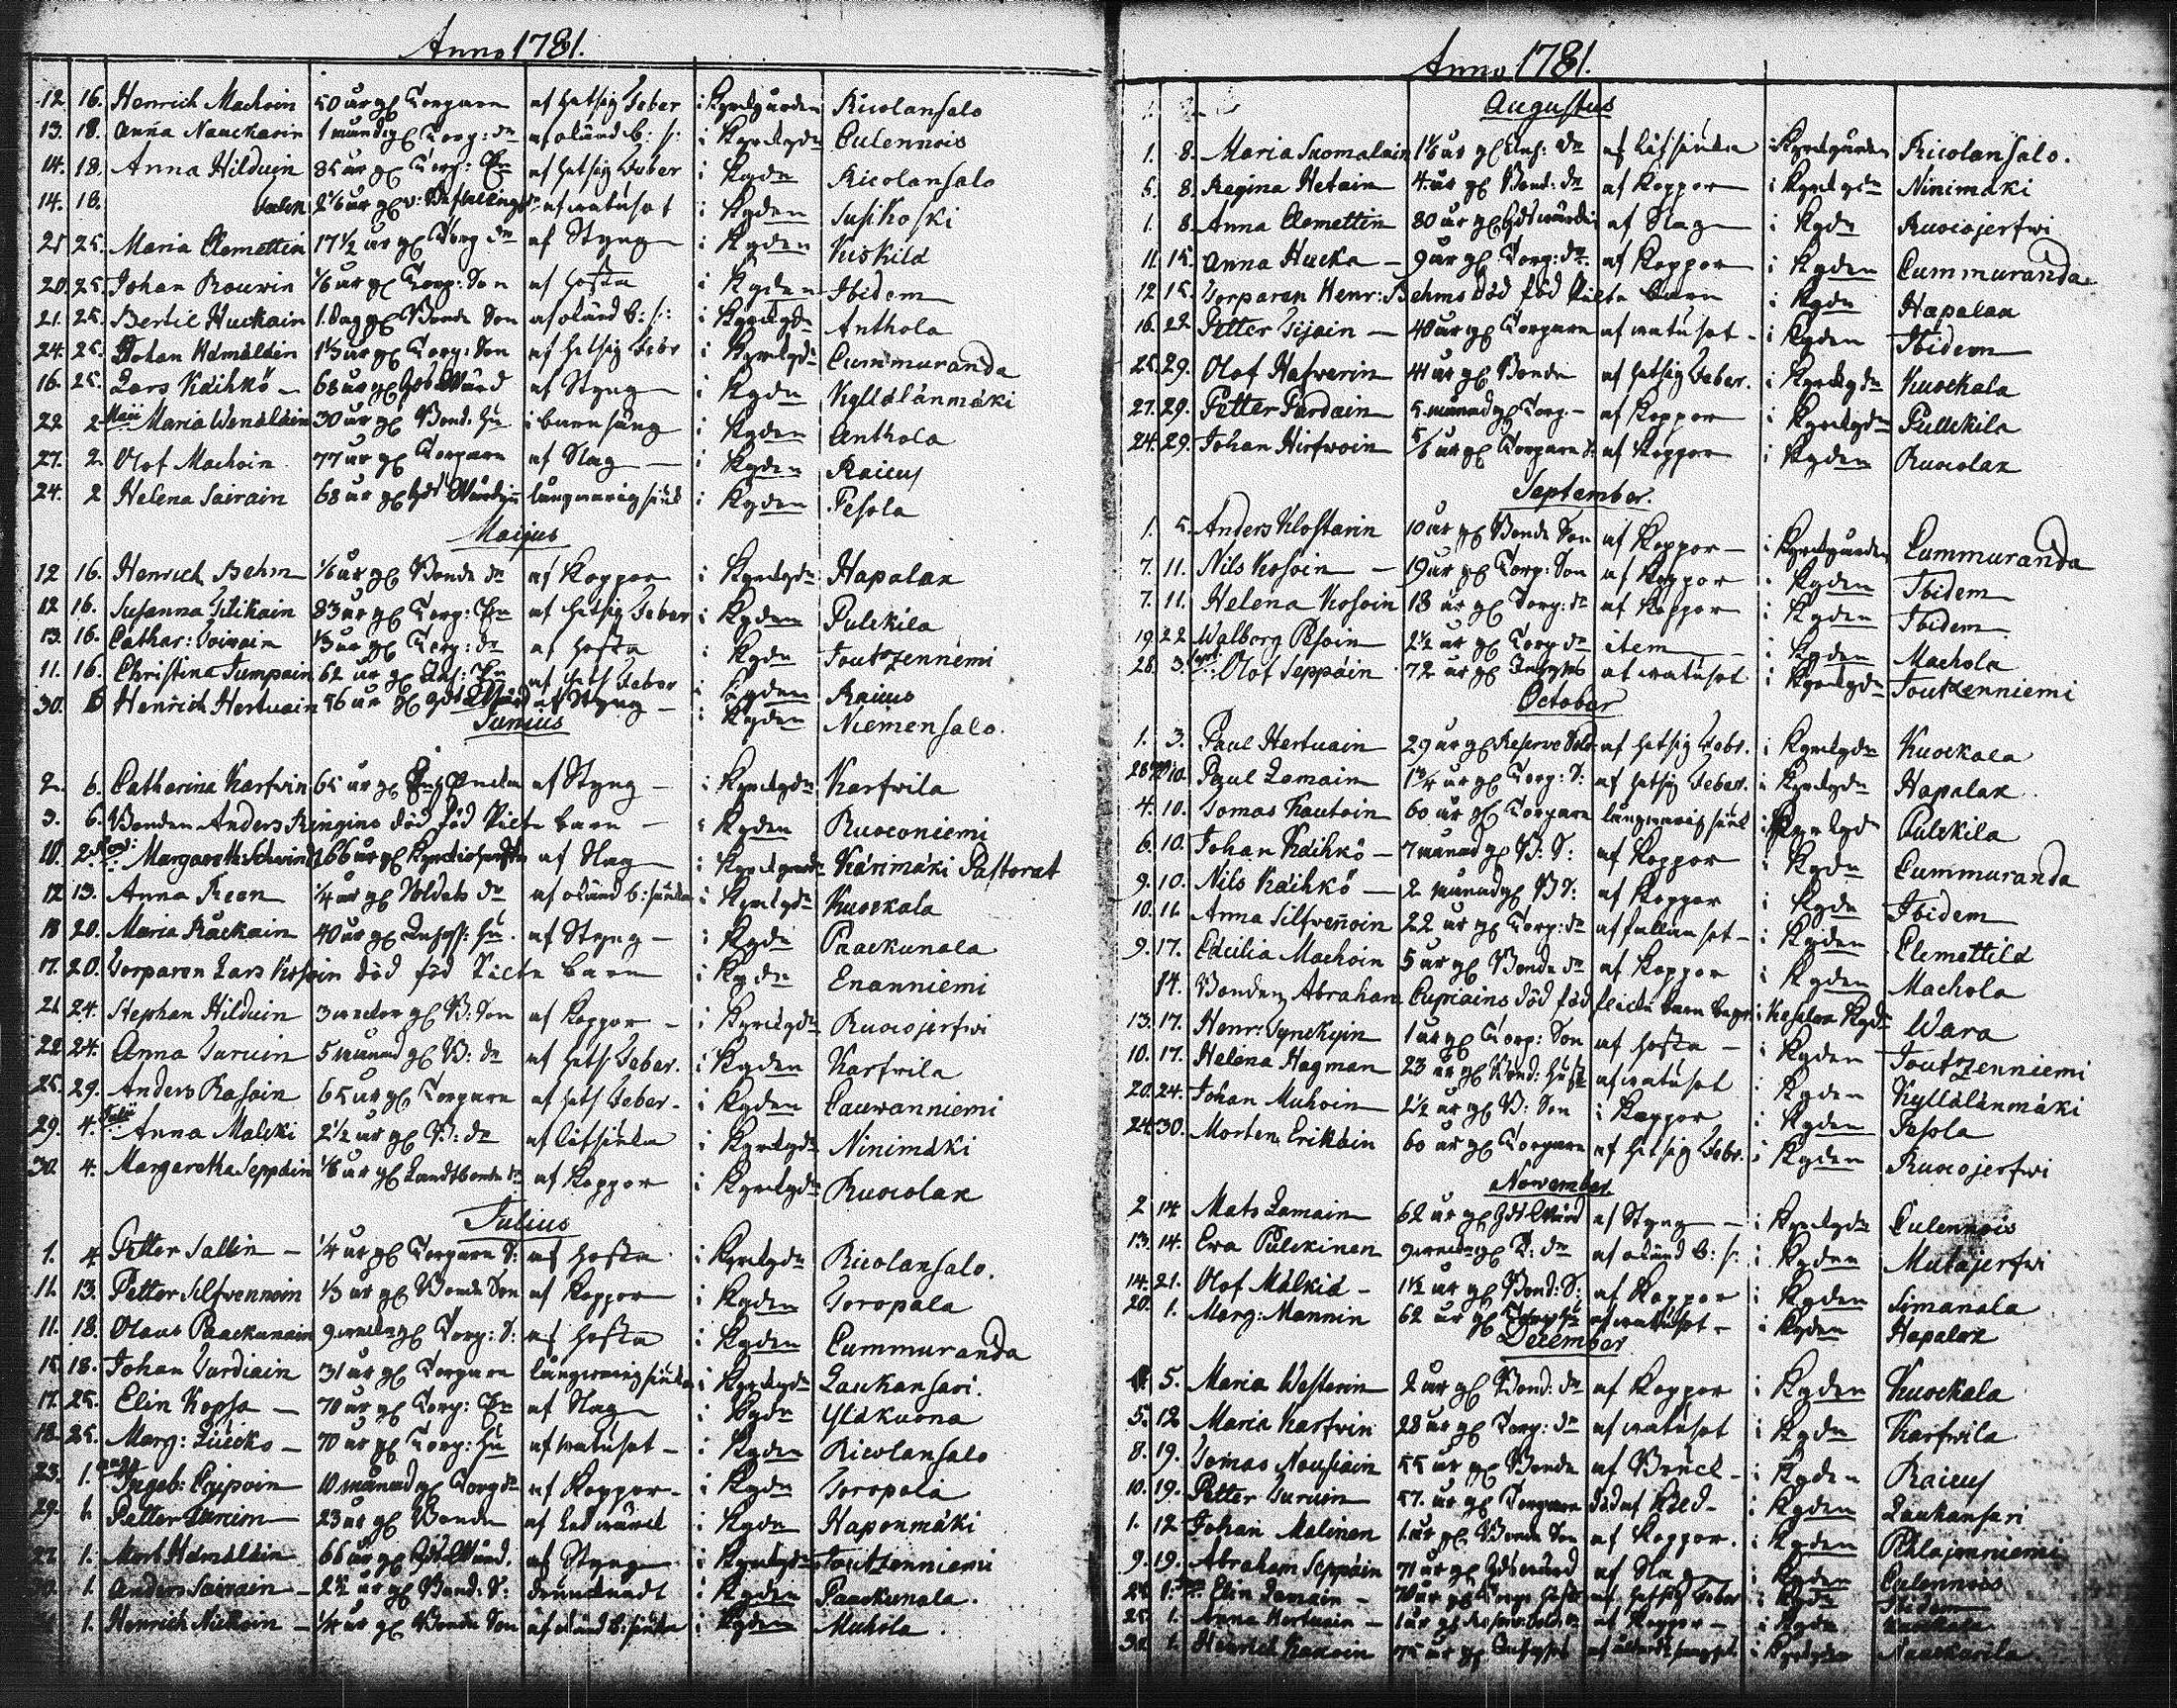 Anno 1781.
12. 16. Henrich Machoin 50 år gl Torparen af hetsig Feber i Kyrckgården Ricolansalo
13. 18. Anna Nauckarin 1 månad gl Torp: dr af okänd b: s: i Kyrckgdn Culennois
14. 18. Anna Hilduin 85 år gl Torp: Enk af hetsig Feber i Kgdn Ricolansalo
14. 18. 2 1/6 år gl af wattusot i Kgden Susikoski
25 25. Maria Clemettin 17 1/2 år gl Torp dr af Styng i Kgden Kiskilä
20. 25. Johan Rouwin 1/6 år gl Torp: Son af hosta i Kgden Ibidem
21. 25. Bertil Huckain 1. dag gl Bonde Son af okänd b: s: i Kyrckgdn Anthola
24. 25. Johan Hämäläin 1 1/3 år gl Torp: Son af hetsig Febr i Kyrckgdn Cummuranda
16. 25. Lars Käihkö 68 år gl Gds Wärd af Styng i Kgdn Kylländmäki
22 2 Maii Maria Wenäläin 30 år gl Bond. Hu i barnsäng i Kgden Anthola
27. 2. Olof Machoin 77 år gl Torparen af Slag i Kgden Raicus
24. 2 Helena Sairain 68 år gl Gds Wärdin långwarig siuk i Kgden Pesola
Maijus
12 16. Henrich Behm 1/6 år gl Bonde dr af Koppor i Kyrckgdn Hapalax
12 16. Susanna Tilikain 83 år gl Torp: Enk af hetsig Feber i Kgden Pulckila
13. 16. Cathar: Toivain 1/3 år gl Torp: dr af hosta i Kgdn Toutzenniemi
11. 16. Christina Tumpain 62 år gl Inh: Enk af hets Feber i Kgden Raicus
30. 6 Henrich Hertuain 56 år gl Gds Wärd af Styng i Kgden Niemensalo.
Junius
2. 6. Catharina Karfvin 65 år gl Enckia af Styng i Kyrckgdn Karfvila
3. 6. Bonden Anders Ringins död föd Pilte barn i Kgden Ruoconiemi
10. 2. Margaretha Schwind 66 år gl af Slag i Kyrckgården Kärimäki Pastorat
12 13. Anna Reen 1/4 år gl Soldats dr af okänd b: siukd i Kyrckgdn Kuockala
18 20. Maria Räckain 40 år gl Inhys: Hu. af Styng i Kgdn Paackunala
17. 20. Torparen Lars Kosoin död föd Pilte barn i Kgdn Enanniemi
21 24. Stephan Hilduin 3 weckor gl B: Son af Koppor i Kyrckgdn Ruocojerfwi
22 24. Anna Turuin 5 månad gl B: dr af hets Feber. i Kgden Karfwila
25. 29. Anders Rasoin 65 år gl Torparen af hets Feber i Kgden Cauwanniemi
29. 4. Julii Anna Malcki 2 1/2 år gl B: dr af litsiuka i Kyrckgdn Ninimäki
30. 4. Margaretha Seppäin 1/6 år gl Landbonde dr af Koppor i Kyrckgdn Ruocolax
Julius
1. 4 Petter Sallin 1/4 år gl Torparen S: af hosta i Kyrckgdn Ricolansalo.
11. 13. Petter Silfvennoin 1/3 år gl Bonde Son af Koppor i Kgden Toropala
11. 18. Olaus Paackunain 9 weckor gl Torp: S: af hosta i Kgden Cummuranda
15. 18. Johan Turdiain 31 år gl Torparen långwarig siukd i Kyrckgdn Laukansari.
17. 25. Elin Kopsa 70 år gl Torp: Enk af Slag i Kgdn Yläkuona
18. 25. Marg: Lüicko 70 år gl Torp: Hu af wattusot i Kgden Ricolansalo
23. 1. Aug Ingeb: 10 månad gl Torp dr af Koppor i Kgdn Toropala
29. 1. Petter Turuin 23 år gl Bonde af i Kgdn Haponmäki
27. 1. Mart Hämäläin 66 år gl Gds Wärd. af Styng i Kyrckgdn Toutzenniemi
1. Anders Sairain 2 1/2 år gl Bond: S: drunknadt i Kgden Paackunala.
1. Henrich Nickoin 1/4 år gl Bonde Son af okänd b: siukd i Kgden Muhola.
Anno 1781.
Augustus
1. 8. Maria Suomalain 1 1/6 år gl Inh: dr af litsiuka i Kyrckgården Ricolansalo.
5. 8. Regina Hetain 4. år gl Bond: dr af Koppor i Kyrckgdn Ninimäki
1. 8 Anna Clemettin 80 år gl Gds wärdin af Slag i Kgdn Ruocojerfwi
11. 15. Anna Hucka 9 år gl Torp: dr. af Koppor i Kgden Cummuranda
12 15. Torparen Henr: Behms död föd Pilte barn i Kgdn Hapalax
16. 22. Petter Tijain 40 år gl Torparen af wattusot i Kgden Ibidem
25. 29. Olof Hafverin 41 år gl Bonde af hetsig Feber. i Kyrckgdn Kuockala
27. 29. Petter Pardain 5. månad gl Torp af Koppor i Kyrckgdn Pullckila
24. 29. Johan Hirfwoin 5/6 år gl Torparen S: af Koppor i Kgden Ruocolax
September.
1. 5. Anders Klostarin 10 år gl Bonde Son af Koppor i Kyrckgården Cummuranda
7. 11. Nils Kosoin 19 år gl Torp: Son af Koppor i Kgden Ibidem
7. 11. Helena Kosoin 18 år gl Torp: dr af Koppor i Kgden Ibidem
19. 22 Walborg Pesoin 2 1/2 år gl Torp dr item i Kgden Machola
28. 3. Olof Seppäin 72 år gl Inhyses af wattusot i Kyrckgdn Toutzenniemi
October
1. 3. Paul Hertuain 29 år gl Reserve Sold. af hetsig Febr. i Kyrckgdn Kuockala
28 10. Paul Lamain 1 3/4 år gl Torp: S: af hetsig Feber. i Kyrckgdn Hapalax
4. 10. Tomas Kautoin 60 år gl Torparen långwarig siuk i Kyrckgdn Pulckila
6. 10. Johan Käihkö 7 månad gl B: S: af Koppor i Kgdn Cummuranda
9. 10. Nils Käihkö 2 månad gl B S: af Koppor i Kgdn Ibidem
10. 11. Anna Silfvenoin 22 år gl Torp: dr af fallansot i Kgden Clemettilä
9. 17. Cäcilia Machoin 5 år gl Bonde dr af Koppor i Kgden Machola
14. Bonden Abraham Cupiains död föd flicke barn begr: i Kesälax Kgdn Wara
13. 17. Henr: Synckyin 1 år gl Torp: Son af hosta i Kgden Toutzenniemi
10. 17. Helena Hagman 23 år gl Bond: Hust af wattusot i Kgden Kylländmäki
20. 24. Johan Muhoin 2 1/2 år gl B: Son i Koppor i Kgden Pesola
24. 30. Morten Erikäin 60 år gl Torparen af hetsig Febr. i Kgden Ruocojerfwi
November
2 14 Mats Lamain 62 år gl Gds Wärd af Styng i Kyrckgdn Culennois
13. 14. Ewa Pulckinen 9 weckor gl B: dr af okänd b: s: i Kgden Mutajerfwi
14. 21. Olof Mälkiä 1 1/2 år gl Bond: S: af Koppor i Kgden Simanala
20. 1. Marg: Mannin 62 år gl Torp Hu af wattusot i Kgden Hapalax
December
5. Maria Westerin 2 år gl Bond: dr af Koppor i Kgden Kuockala
5. 12 Maria Karfvin 28 år gl Torp: dr af wattusot i Kgdn Karfwila
8. 19. Tomas Nousiain 55 år gl Bonde af Bråck i Kgden Raicus
10. 19. Petter Turuin 57. år gl Torparen död af Köld i Kgden Laukansari
1. 12 Johan Malinen 1 år gl Bonde Son af Koppor. i Kgden Pihlajanniemi
9. 19. Abraham Seppäin 71 år gl Gds wärd af Slag i Kgden Culennois
1. Elin Lamain 70 år gl Torp: af hetsig Feber i Kgdn Ibidem
25. 1. Anna Hertuain 1 år gl Reserve af Koppor i Kgdn Kuockala
31. 1. Henrich Kakoin 75 år gl Inhyses i Kyrckgdn Nauckarila.